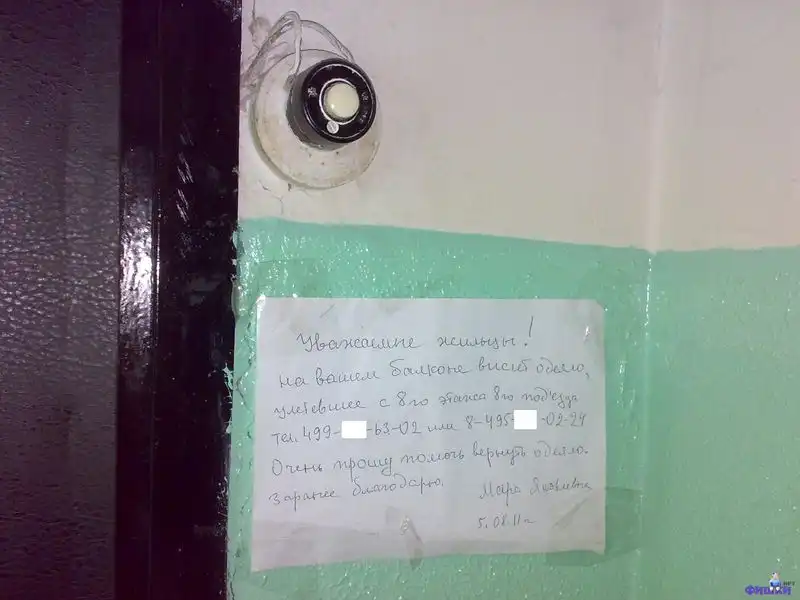 Уважаемые жильцы!
на вашем балконе висит одеяло,
улетевшее с 8го этажа 8го под'езда
тел. 499- -63-02 или 8-495- -02-24
Очень прошу помочь вернуть одеяло.
Заранее благодарю.
Мара Яковлевна
5.08.11г
ФИШКИ
.НЕТ